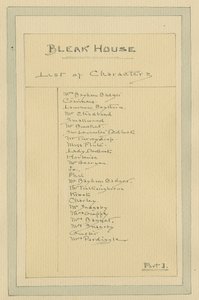 BLEAK HOUSE
LIST of Characters
Mrs Bayham Badger
Coavinses
Lawrence Boythorn
Mr Chadband
Smallweed
Mr Bucket
Sir Leicester Dedlock
Mr Turveydrop
Miss Flite
Lady Dedlock
Hortense
Mr George
Jo
Phil
Mr Bayham Badger
Mr Tulkinghorn
Krook
Charley
Mr Jellyby
Mr Guppy
Mr Bagnet
Mr Snagsby
Mrs Pardiggle
Part I.